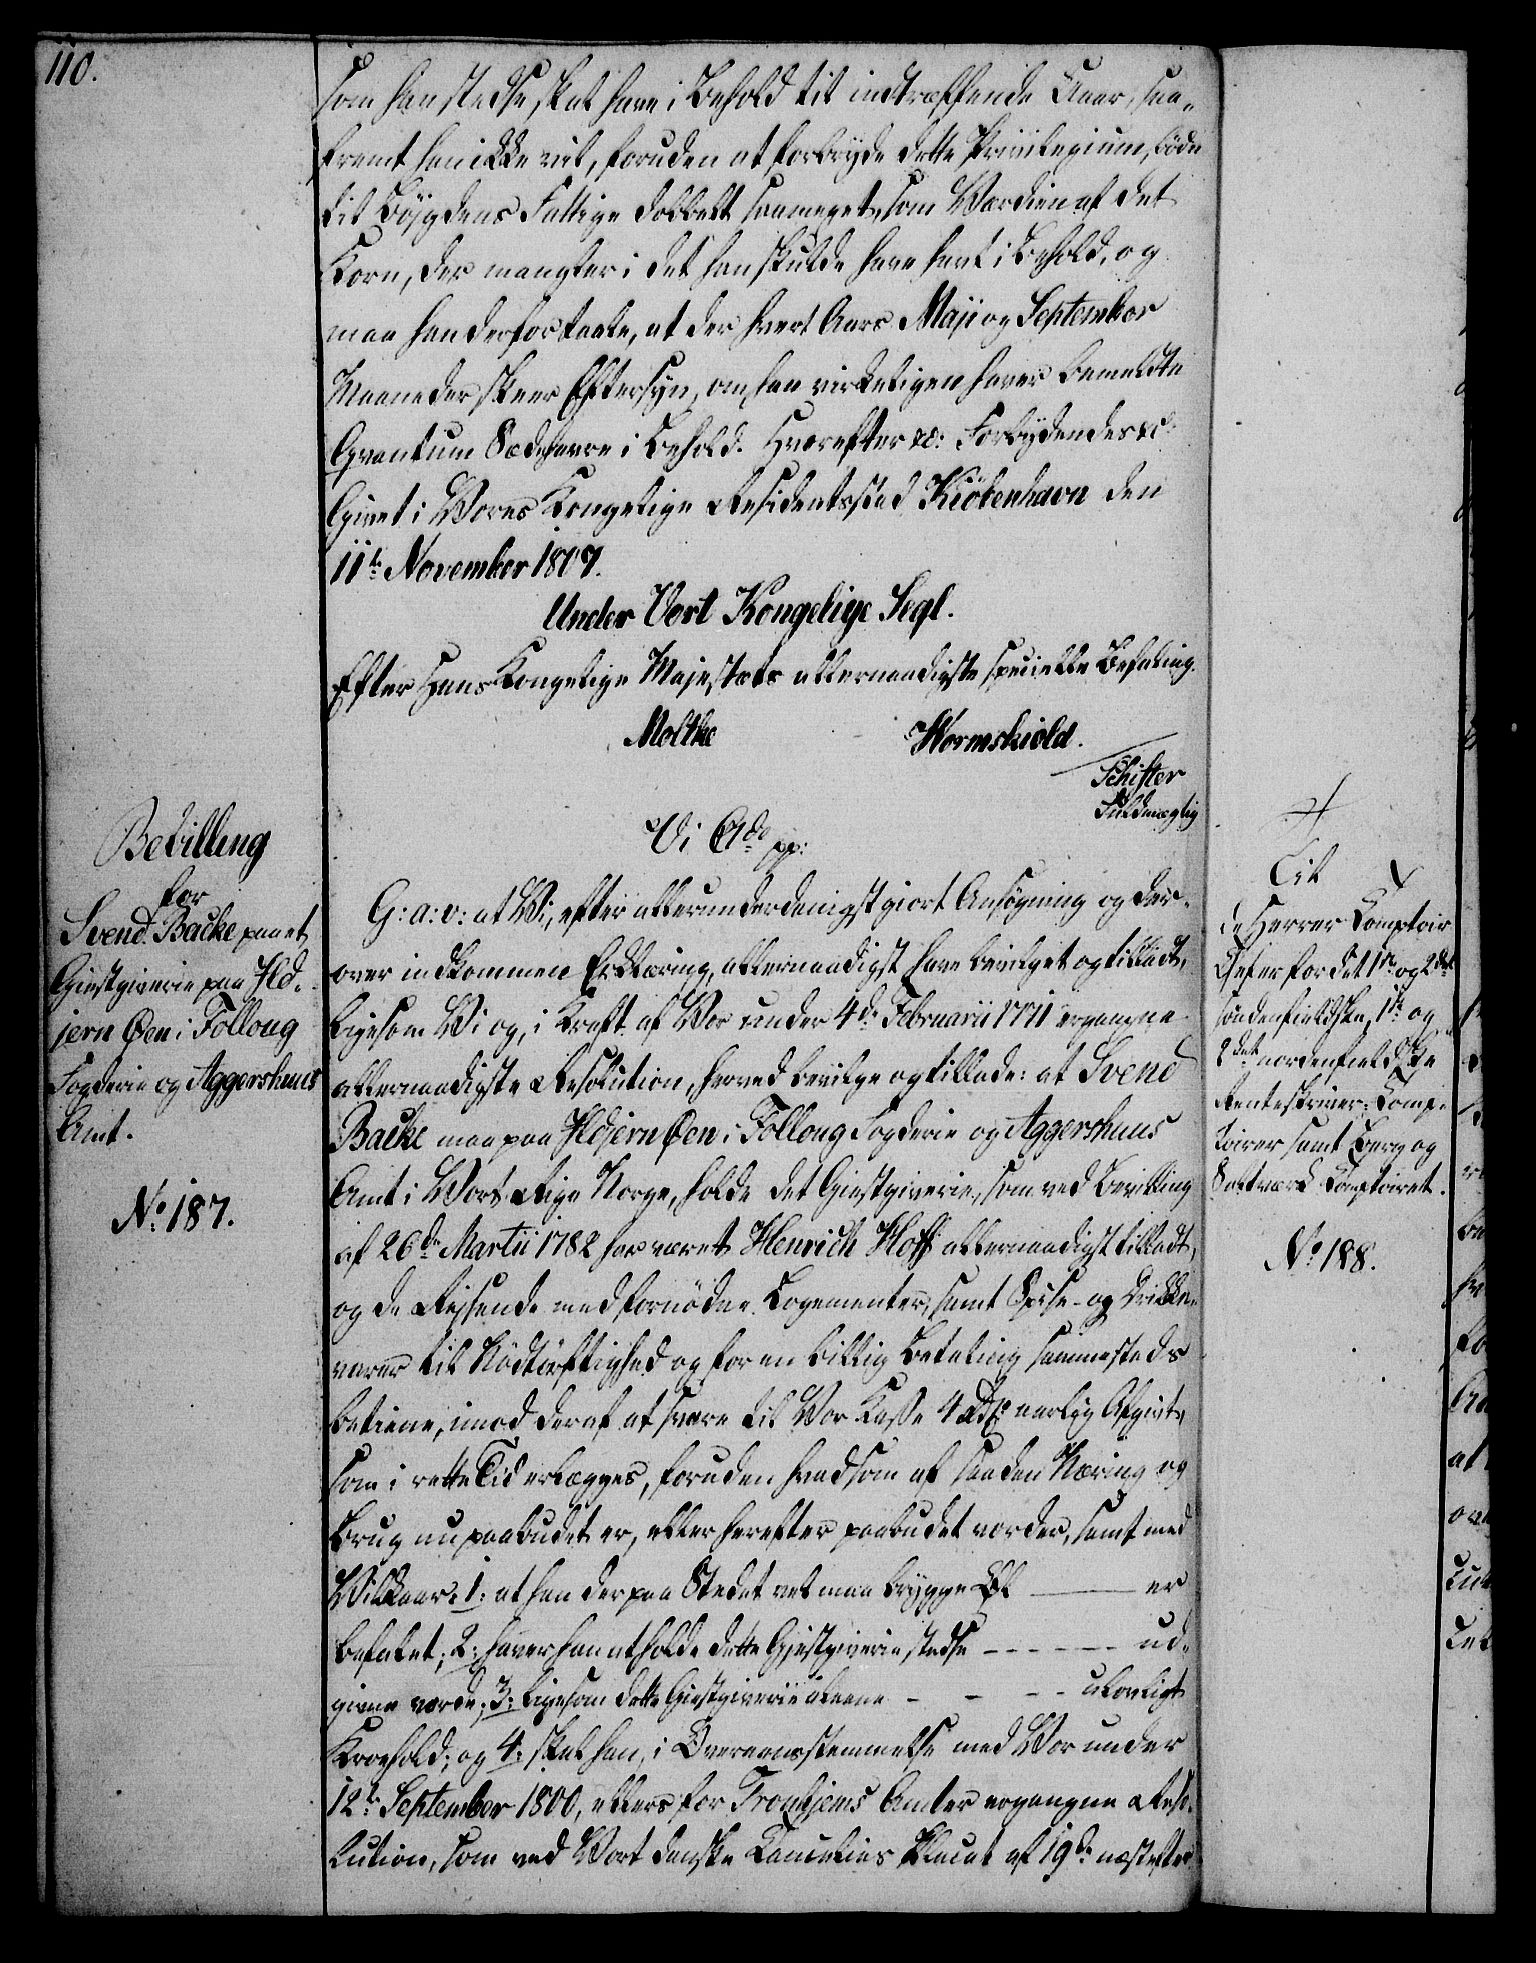 110.
som han stedse skal have i Behold til indtræffende Uaar, saa-
fremt han ikke vil, foruden at forbryde dette Privilegium, bøde
til Bøygdens Fattige dobbelt saameget, som Værdien af det
Korn, der mangler i det han skulde have havt i Behold, og
maa han derfor taale, at der hvert Aars Maji og September
Maaneder skeer Eftersyn, om han virkeligen haver bemeldte
Qvantum Sædehavre i Behold. Hvorefter &c: Forbydendes &c:
Givet i Vores Kongelige Residentsstad Kiöbenhavn den
11te November 1807.
Under Vort Kongelige Segl.
Efter Hans Kongelige Majestæts allernaadigste specielle Befaling.
Moltke Wormskiold.
Schifter
Fuldmægtig
Bevilling
for
Svend Backe paa et
Giestgiverie paa Ild-
jern Øen i Folloug
Fogderie og Aggershuus
Amt.
No 187.
Vi C 7de pp:
G: a: v: at Vi, efter allerunderdanigst giort Ansøgning og der-
over indkommen Erklæring, allernaadigst have bevilget og tilladt,
ligesom Vi og, i Kraft af Vor under 4de Februarii 1771 ergangne
allernaadigste Resolution, herved bevilge og tillade: at Svend
Backe maa paa Ildjern Øen i Folloug Fogderie og Aggershuus
Amt i Vort Rige Norge, holde det Giestgiverie, som ved Bevilling
af 26de Martii 1782 har været Henrich Hoff allernaadigst tilladt,
og de Rejsende med fornødne Logementer, samt Spise- og Drikke-
varer til Nødtørftighed og for en billig Betaling sammesteds
betiene, imod deraf at svare til Vor Kasse 4 Rdlr aarlig Afgivt,
som i rette Tid erlægges, foruden hvad som af saaden Næring og
Brug nu paabudet er, eller herefter paabudet vorder, samt med
Vilkaar: 1: at han der paa Stedet vel maa brygge Øl ——— er
befalet; 2: haver han at holde dette Gjestgiverie stedse - - - - - - ud-
givne vorde; 3: ligesom dette Giestgiverie alleene - - - - ulovligt
Kroehold; og 4: skal han, i Overeensstemmelse med Vor under
12te September 1800, ellers for Tronhjems Amter ergangne Reso-
lution, som ved Vort danske Cancelies Placat af 19de næstefter
Til
de Herrer Comptoir
Chefer for det 1ste og 2det
søndenfieldske, 1ste og
2det nordenfieldske
Renteskriver-Comp-
toirer samt Berg og
Saltværk Comptoiret.
No 188.